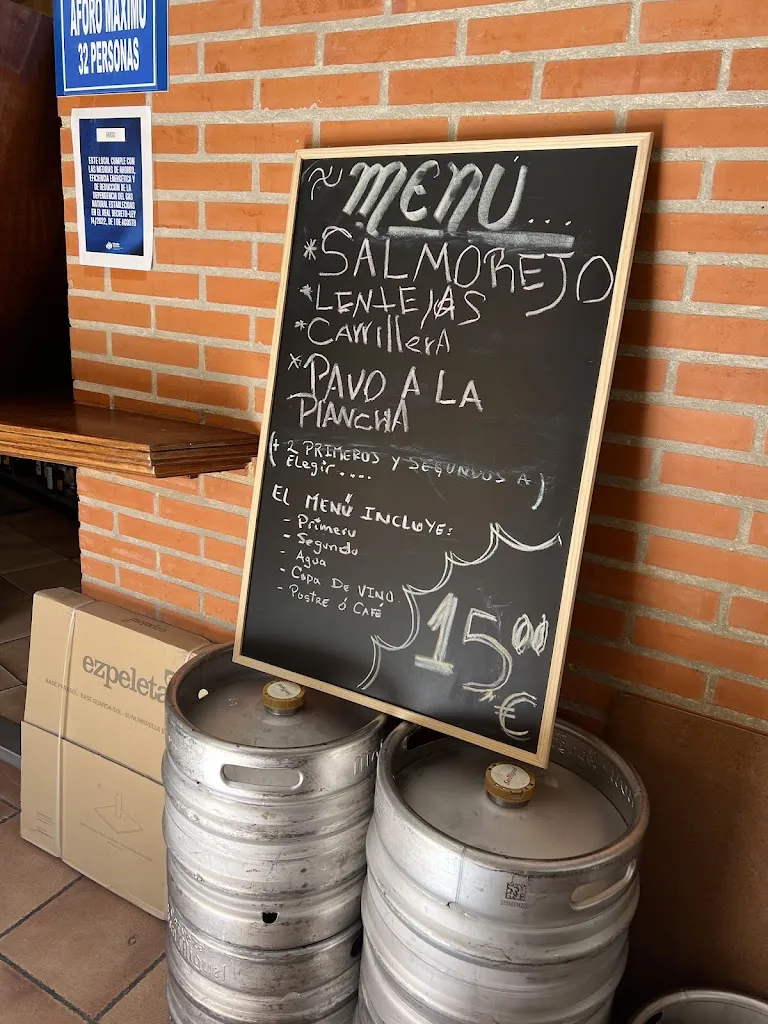 AFORO MÁXIMO
32 PERSONAS
AVISO
ESTE LOCAL CUMPLE CON
LAS MEDIDAS DE AHORRO,
EFICIENCIA ENERGÉTICA Y
DE REDUCCIÓN DE LA
DEPENDENCIA DEL GAS
NATURAL ESTABLECIDAS
EN EL REAL DECRETO-LEY
14/2022, DE 1 DE AGOSTO
~ MENÚ...
* SALMOREJO
* LENTEJAS
* CArrillerA
* PAVO A LA
PlANCHA
(+ 2 PRIMEROS Y SEGUNDOS A)
Elegir....
EL MENÚ INCLUYE:
- Primeru
- Segundo
- Agua
- Copa DE VINO
- Postre ó CAFÉ
15,00
€
ezpeleta